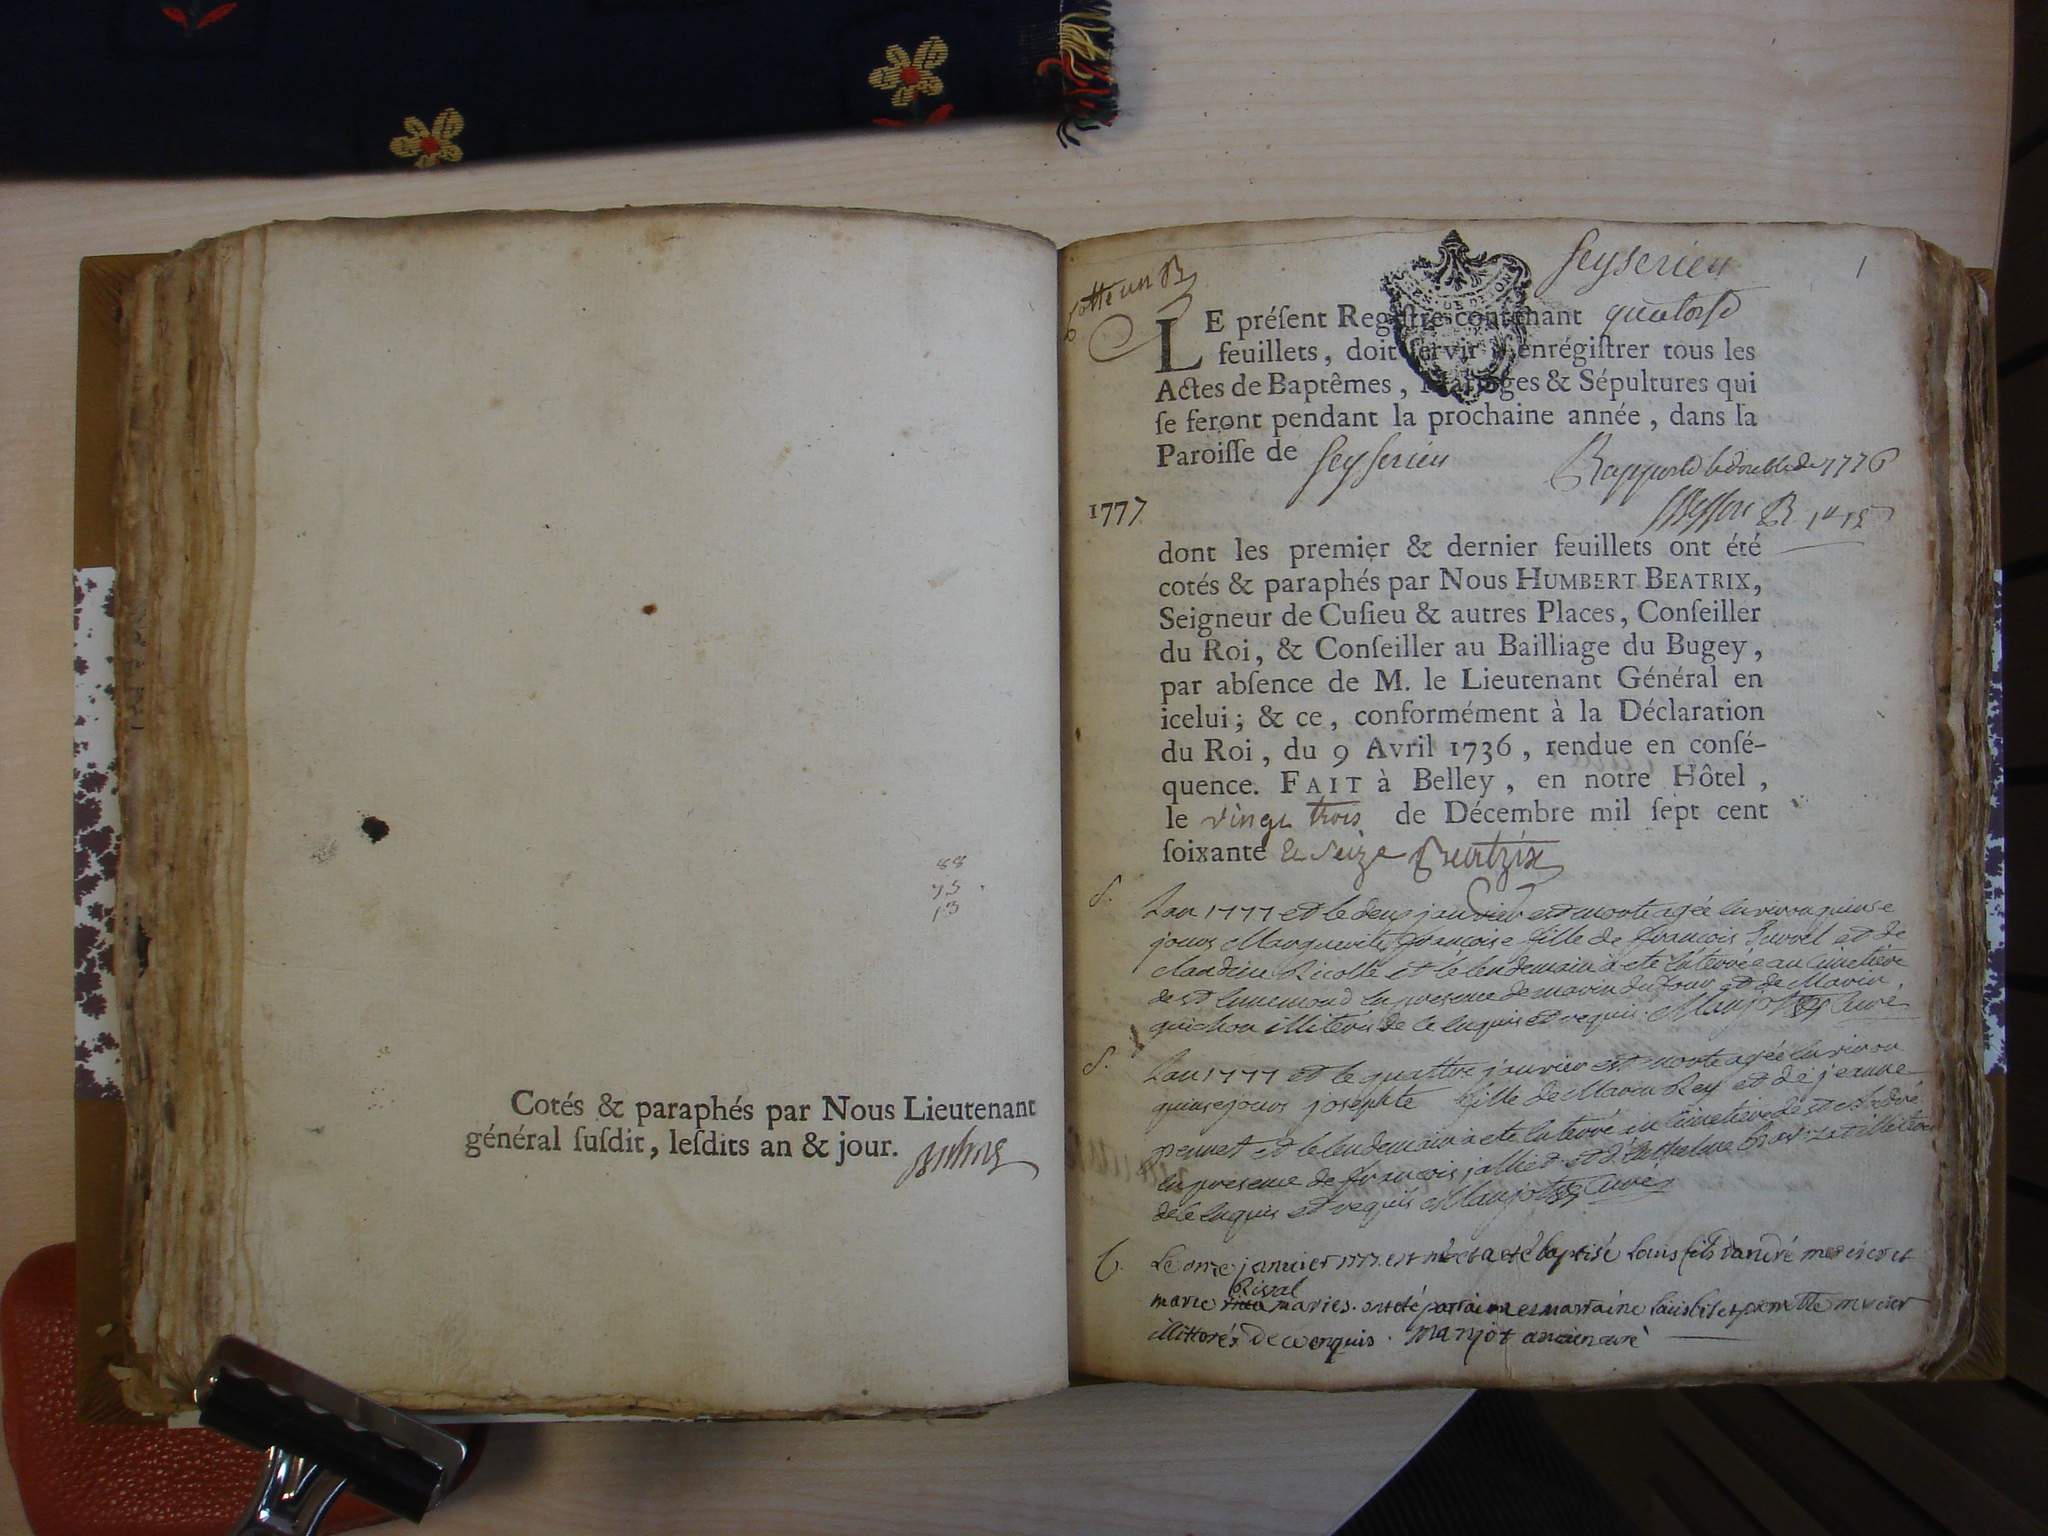 88
75
13
Cotés & paraphés par Nous Lieutenant
général ſuſdit, leſdits an & jour.
Seyserieu
1
Cotte un
LE préſent Regiſtre contenant quatorse
feuillets, doit ſervir à enrégiſtrer tous les
Actes de Baptêmes, Mariages & Sépultures qui
ſe feront pendant la prochaine année, dans la
Paroiſſe de Seyserieu
Rapporté le double de 1776
1777
dont les premier & dernier feuillets ont été
cotés & paraphés par Nous HUMBERT BEATRIX,
Seigneur de Cuſieu & autres Places, Conſeiller
du Roi, & Conſeiller au Bailliage du Bugey,
par abſence de M. le Lieutenant Général en
icelui; & ce, conformément à la Déclaration
du Roi, du 9 Avril 1736, rendue en conſé-
quence. FAIT à Belley, en notre Hôtel,
le vingt trois de Décembre mil ſept cent
ſoixante & seize Beatrix
S.
Lan 1777 et le deux janvier est morte agée environ quinse
jours Marguerite françoise fille de françois et de
claudine Ricolle et le lendemain a ete enterrée au cimetière
de st ennemond en presence de marin du four et de Marin
guichon illiterés de ce enquis et requis. Manjot Curé
S.
Lan 1777 et le quattre janvier est morte agée environ
quinse jours josephte fille de Marin Rey et de jeanne
pennet et le lendemain a ete enterré au cimetière de st André
en presence de françois jallier et d'anthelme illiterés
de ce enquis et requis Manjot Curé
b.
Le onze janvier 1777 est né et a été baptisé Louis fils d'andré mercier et
Rival
marie maries. ont été parrain et marraine Louis et pernette mercier
illittorés de ce enquis. Manjot ancien curé